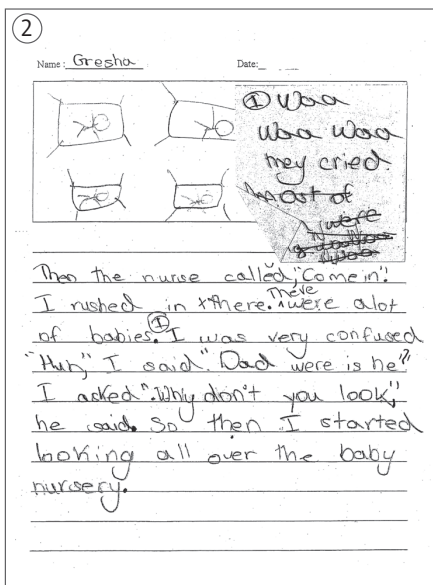 2
Name: Gresha Date:
① Waa
Waa Waa
they cried.
Most of
were
Then the nurse called, "Come in"!
I rushed in there. There were alot
of babies. ① I was very confused
"Huh," I said "Dad were is he"?
I asked". Why don't you look,"
he said. So then I started
looking all over the baby
nursery.